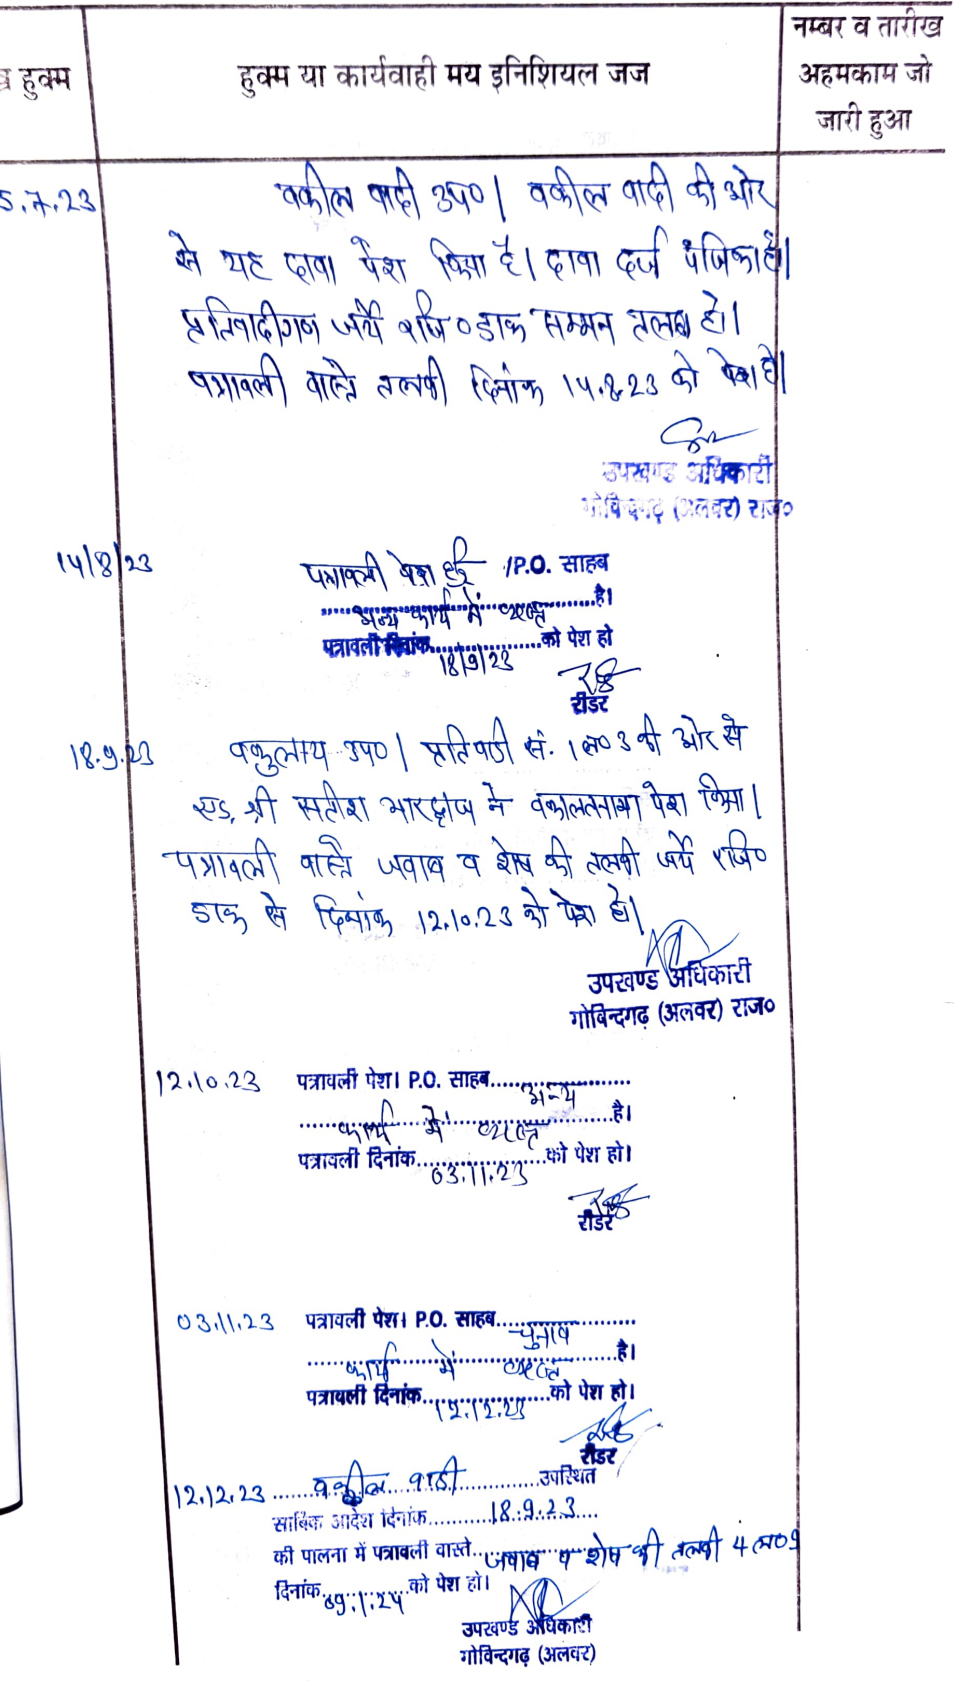 हुक्म
हुक्म या कार्यवाही मय इनिशियल जज
नम्बर व तारीख
अहमकाम जो
जारी हुआ
5.7.23
वकील वादी उप० । वकील वादी की ओर
से यह दावा पेश किया है। दावा दर्ज पंजिका हो।
प्रतिवादीगण जर्ये रजि० डाक सम्मन तलब हो।
पत्रावली वास्ते तलबी दिनांक 14.8.23 को पेश हो।
उपखण्ड अधिकारी
गोविन्दगढ़ (अलवर) राज०
14/8/23
पत्रावली पेश हुई /P.O. साहब
अन्य कार्य में व्यस्त है।
पत्रावली दिनांक 18/9/23 को पेश हो
रीडर
18.9.23
वकुलाय उप० । प्रतिवादी सं. 1 ल० 3 की ओर से
एड. श्री सतीश भारद्वाज ने वकालतनामा पेश किया।
पत्रावली वास्ते जवाब व शेष की तलबी जर्ये रजि०
डाक से दिनांक 12.10.23 को पेश हो।
उपखण्ड अधिकारी
गोबिन्दगढ़ (अलवर) राज०
12.10.23
पत्रावली पेश। P.O. साहब अन्य
कार्य में व्यस्त है।
पत्रावली दिनांक 03.11.23 को पेश हो।
रीडर
03.11.23
पत्रावली पेश। P.O. साहब चुनाव
कार्य में व्यस्त है।
पत्रावली दिनांक 12.12.23 को पेश हो।
रीडर
12.12.23 वकील वादी उपस्थित
साबिक आदेश दिनांक 18.9.23
की पालना में पत्रावली वास्ते जवाब व शेष की तलबी 4 ल० 9
दिनांक 09.1.24 को पेश हो।
उपखण्ड अधिकारी
गोबिन्दगढ़ (अलवर)